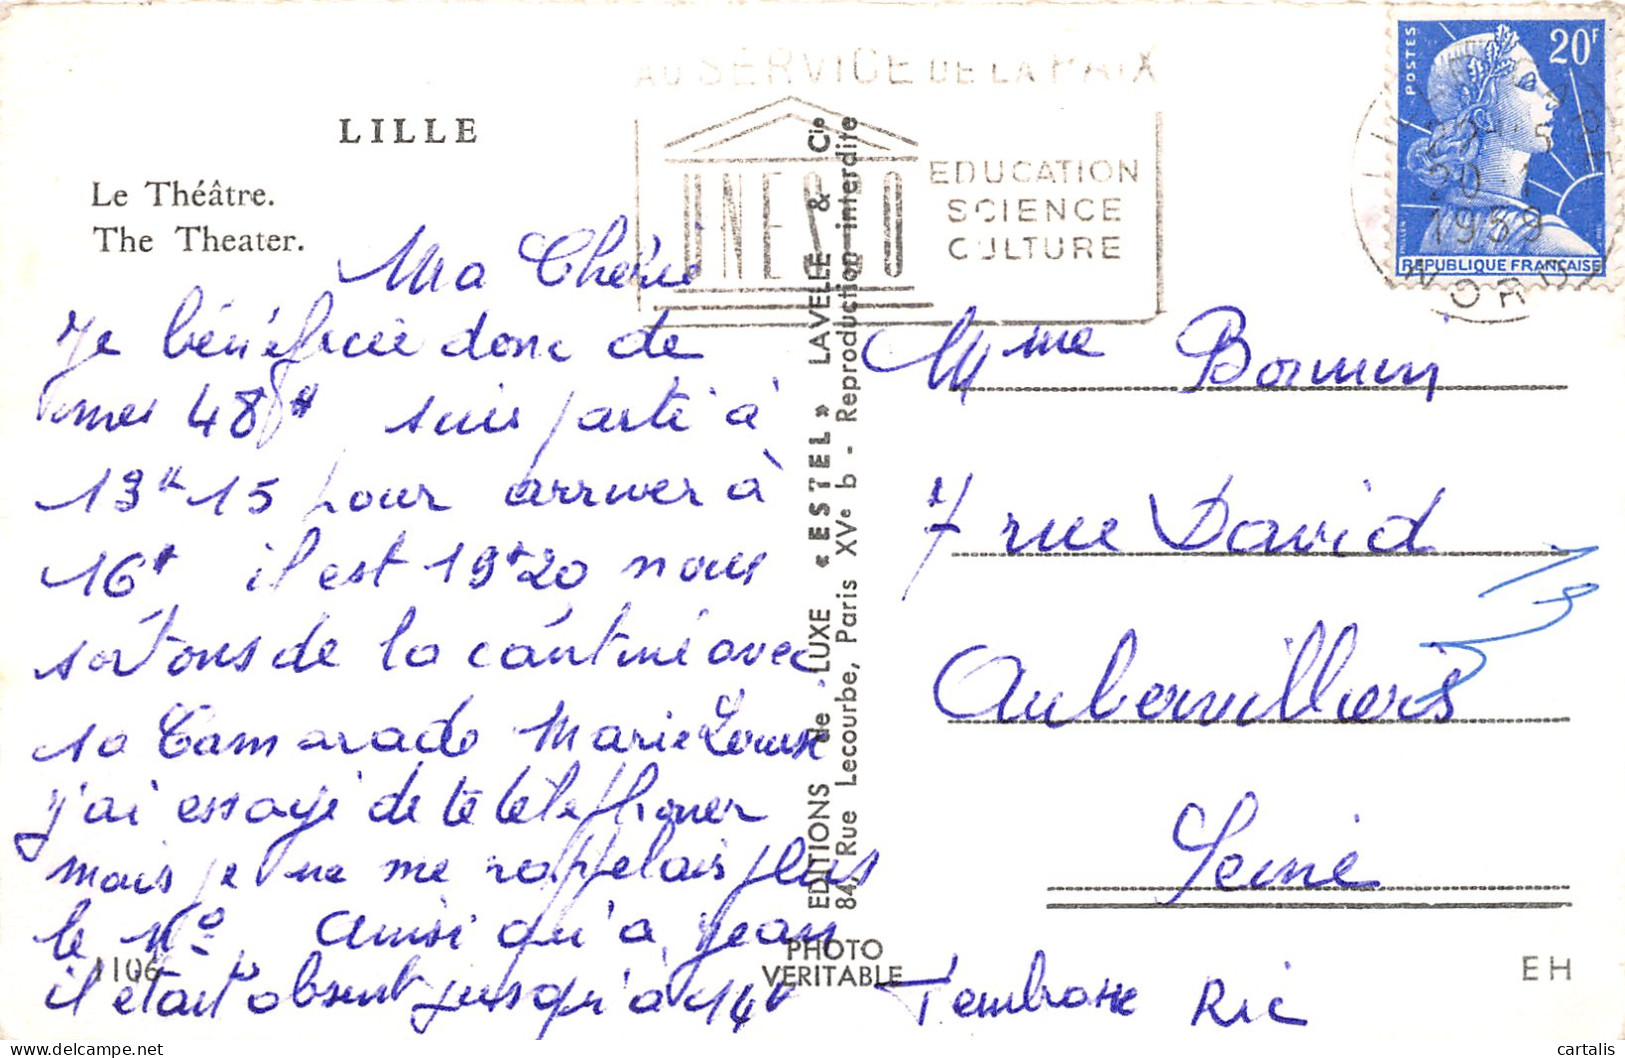 LILLE
Le Théâtre.
The Theater.
AU SERVICE DE LA PAIX
UNESCO
EDUCATION
SCIENCE
CULTURE
POSTES
20F
REPUBLIQUE FRANÇAISE
20-1
1959
NORD
Ma Chérie
Je bénéficie donc de
mes 48H suis parti à
13H15 pour arriver à
16H il est 19H20 nous
sortons de la cantine avec
sa Camarade Marie Louise
j'ai essayé de te téléphoner
mais je ne me rappelais plus
le No ainsi qu'à Jean
il était absent jusqu'à 14H
T'embrasse Ric
Mme
7 rue David
Aubervilliers
Seine
EDITIONS de LUXE « ESTEL » LAVELLE & Cie
84, Rue Lecourbe, Paris XVe b - Reproduction interdite
PHOTO
VERITABLE
1106
EH
cartalis
delcampe.net